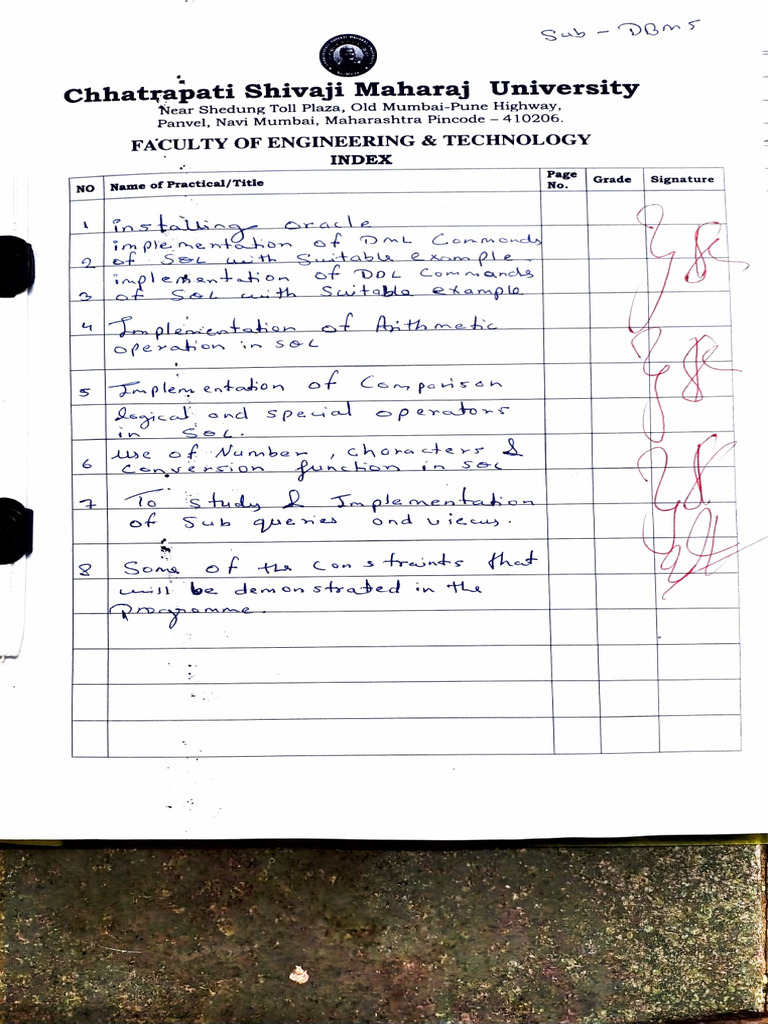 Sub - DBMS
Chhatrapati Shivaji Maharaj University
Near Shedung Toll Plaza, Old Mumbai-Pune Highway,
Panvel, Navi Mumbai, Maharashtra Pincode – 410206.
FACULTY OF ENGINEERING & TECHNOLOGY
INDEX
NO Name of Practical/Title Page No. Grade Signature
1 installing oracle
implementation of DML Commands
2 of SQL with Suitable example.
implementation of DDL Commands
3 of SQL with Suitable example
4 Implementation of Arithmetic
operation in SQL
5 Implementation of Comparison
logical and special operators
in SQL.
use of Number, characters &
6 Conversion function in SQL
7 To study & Implementation
of Sub queries and views.
8 Some of the Constraints that
will be demonstrated in the
Programme.